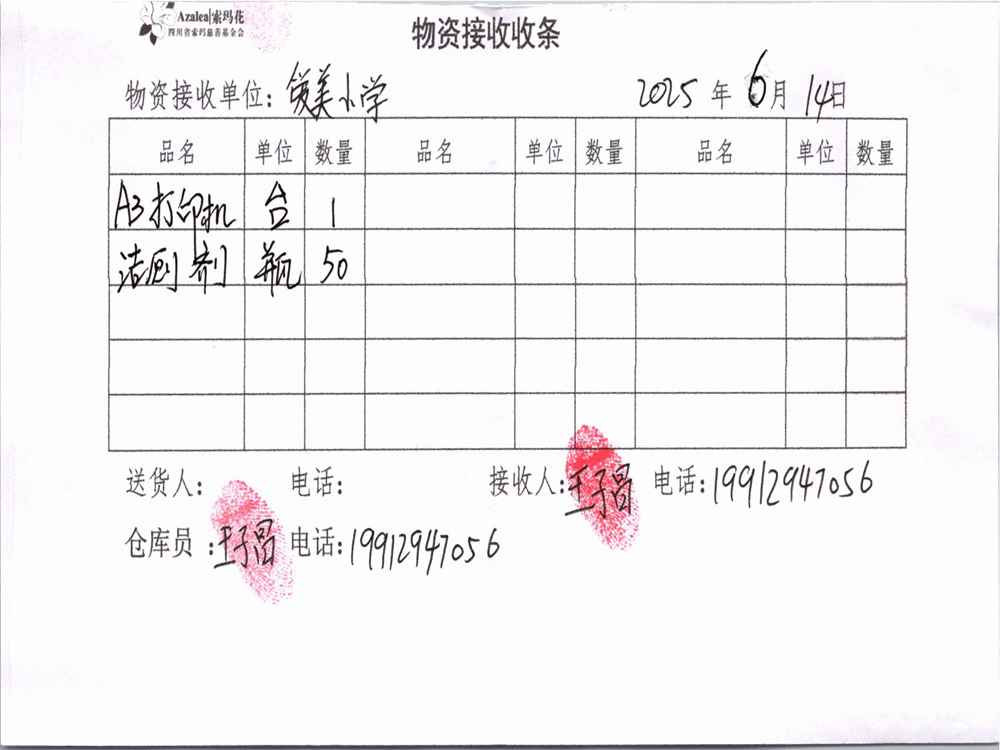 Azalea|索玛花
四川省索玛慈善基金会
物资接收收条
物资接收单位: 美小学 2025 年 6月 14日
品名 单位 数量 品名 单位 数量 品名 单位 数量
A3打印机 台 1
洁厕剂 瓶 50
送货人: 电话: 接收人:王子昌 电话:19912947056
仓库员 :王子昌 电话:19912947056